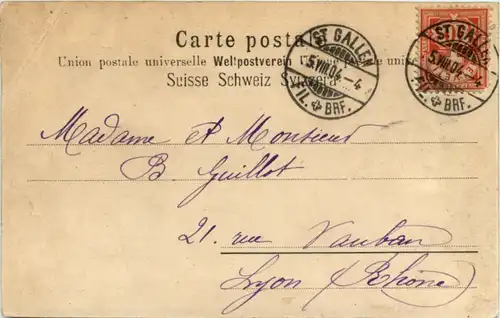 Carte posta
Union postale universelle Weltpostverein
Suisse Schweiz Svizzera
ST. GALLEN
5.VIII.04. – 4
FIL. BRF.
ST. GALLEN
5.VIII.04
FIL. BRF.
Madame et Monsieur
B Guillot
21. rue Vauban
Lyon (Rhône)